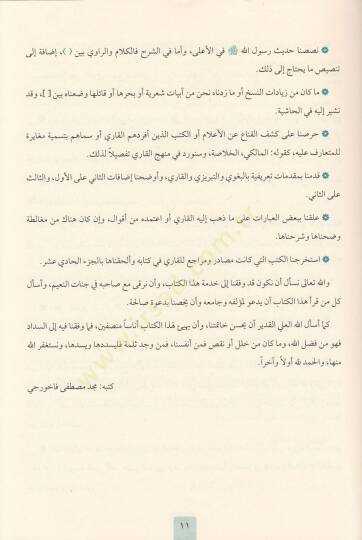 نصصنا حديث رسول الله ﷺ في الأعلى، وأما في الشرح فالكلام والراوي بين ( )، إضافة إلى
تنصيص ما يحتاج إلى ذلك.
ما كان من زيادات النسخ أو ما زدناه نحن من أبيات شعرية أو بحرها أو قائلها وضعناه بين [ ]، وقد
نشير إليه في الحاشية.
حرصنا على كشف القناع عن الأعلام أو الكتب الذين أفردهم القاري أو سماهم بتسمية مغايرة
للمتعارف عليه، كقوله: المالكي، الخلاصة، وسنورد في منهج القاري تفصيلاً لذلك.
قدمنا بمقدمات تعريفية بالبغوي والتبريزي والقاري، وأوضحنا إضافات الثاني على الأول، والثالث
على الثاني.
علقنا ببعض العبارات على ما ذهب إليه القاري أو اعتمده من أقوال، وإن كان هناك من مغالطة
وضحناها وشرحناها.
استخرجنا الكتب التي كانت مصادر ومراجع للقاري في كتابه وألحقناها بالجزء الحادي عشر.
والله تعالى نسأل أن نكون قد وفقنا إلى خدمة هذا الكتاب، وأن نرقى مع صاحبه في جنات النعيم، وأسأل
كل من قرأ هذا الكتاب أن يدعو لمؤلفه وجامعه وأن يخصنا بدعوة صالحة.
كما أسأل الله العلي القدير أن يحسن خاتمتنا، وأن يهيئ لهذا الكتاب أناساً منصفين، فما وفقنا فيه إلى السداد
فهو من فضل الله، وما كان من خلل أو نقص فمن أنفسنا، فمن وجد ثلمة فليسددها ويسدها، ونستغفر الله
منها، والحمد لله أولاً وآخراً.
كتبه: مجد مصطفى فاخورجي
١١